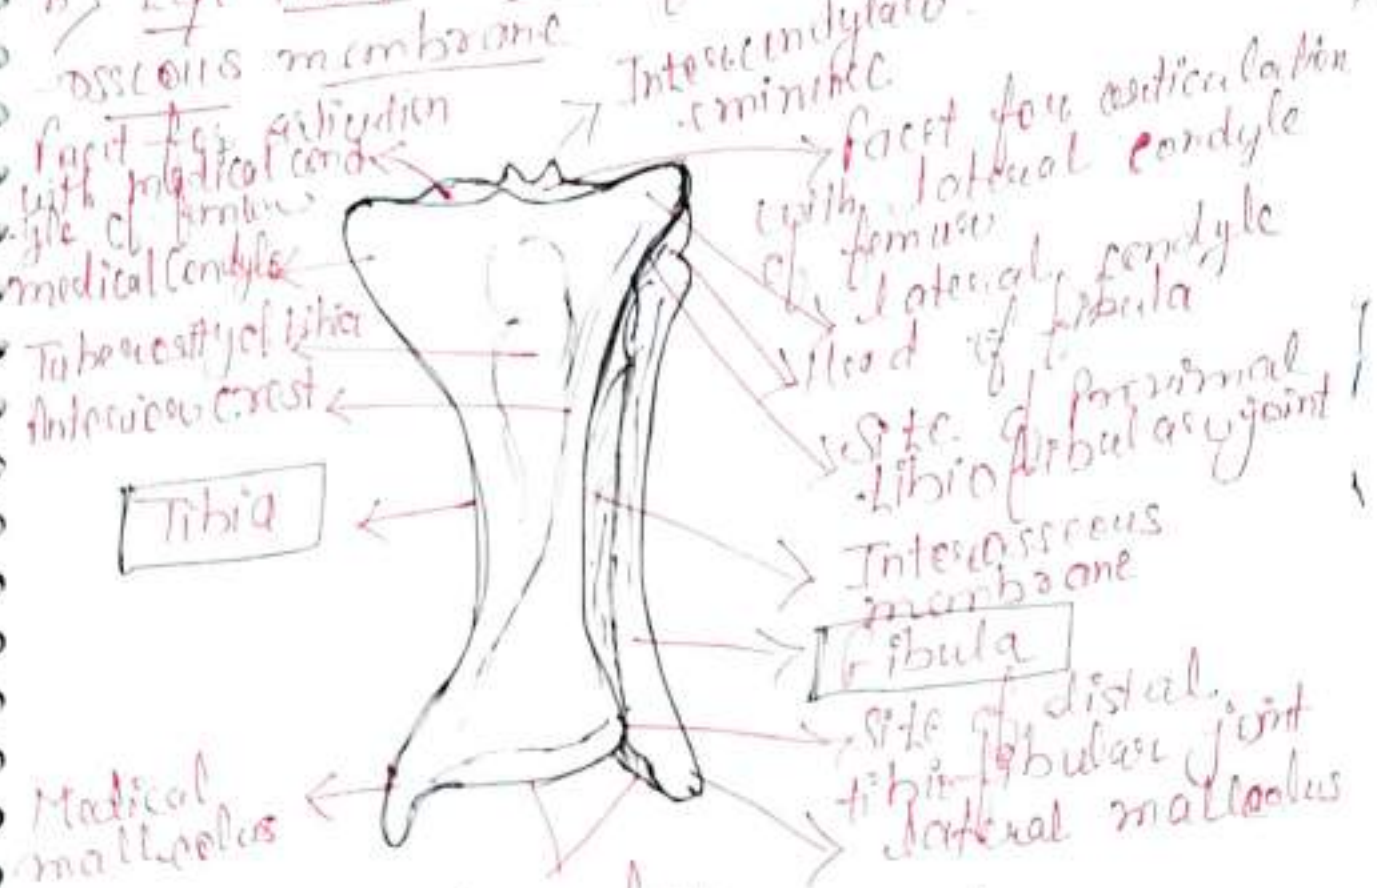 osseous membrane
Intercondylar
eminence
Facit for
with medical cond
yle of femur
medical Condyle
Tuberosity of tibia
Anterior crest
Tibia
Medical
malleolus
facet for articulation
with lateral condyle
of femur
lateral condyle
Head of fibula
Site of proximal
tibiofibular joint
Interosseous
membrane
Fibula
Site of distal
tibio-fibular joint
lateral malleolus